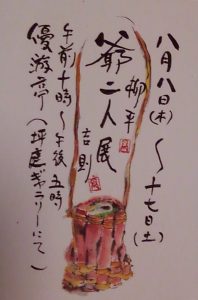 八月八日(木)〜十七日(土)
柳平
爺二人展
吉則
午前十時〜午後五時
優游亭(坪庭ギャラリーにて)